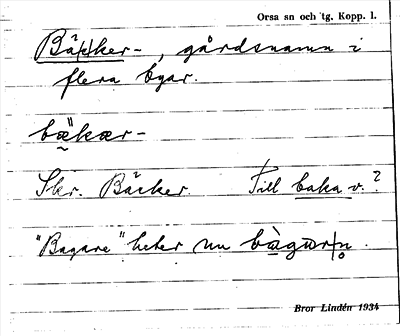 Orsa sn och tg. Kopp. l.
Bä(c)ker-, gårdsnamn i
flera byar.
bä̰kær-
Skr. Bäcker. Till baka v.?
"Bagare" heter nu bàgar̥n.
Bror Lindén 1934